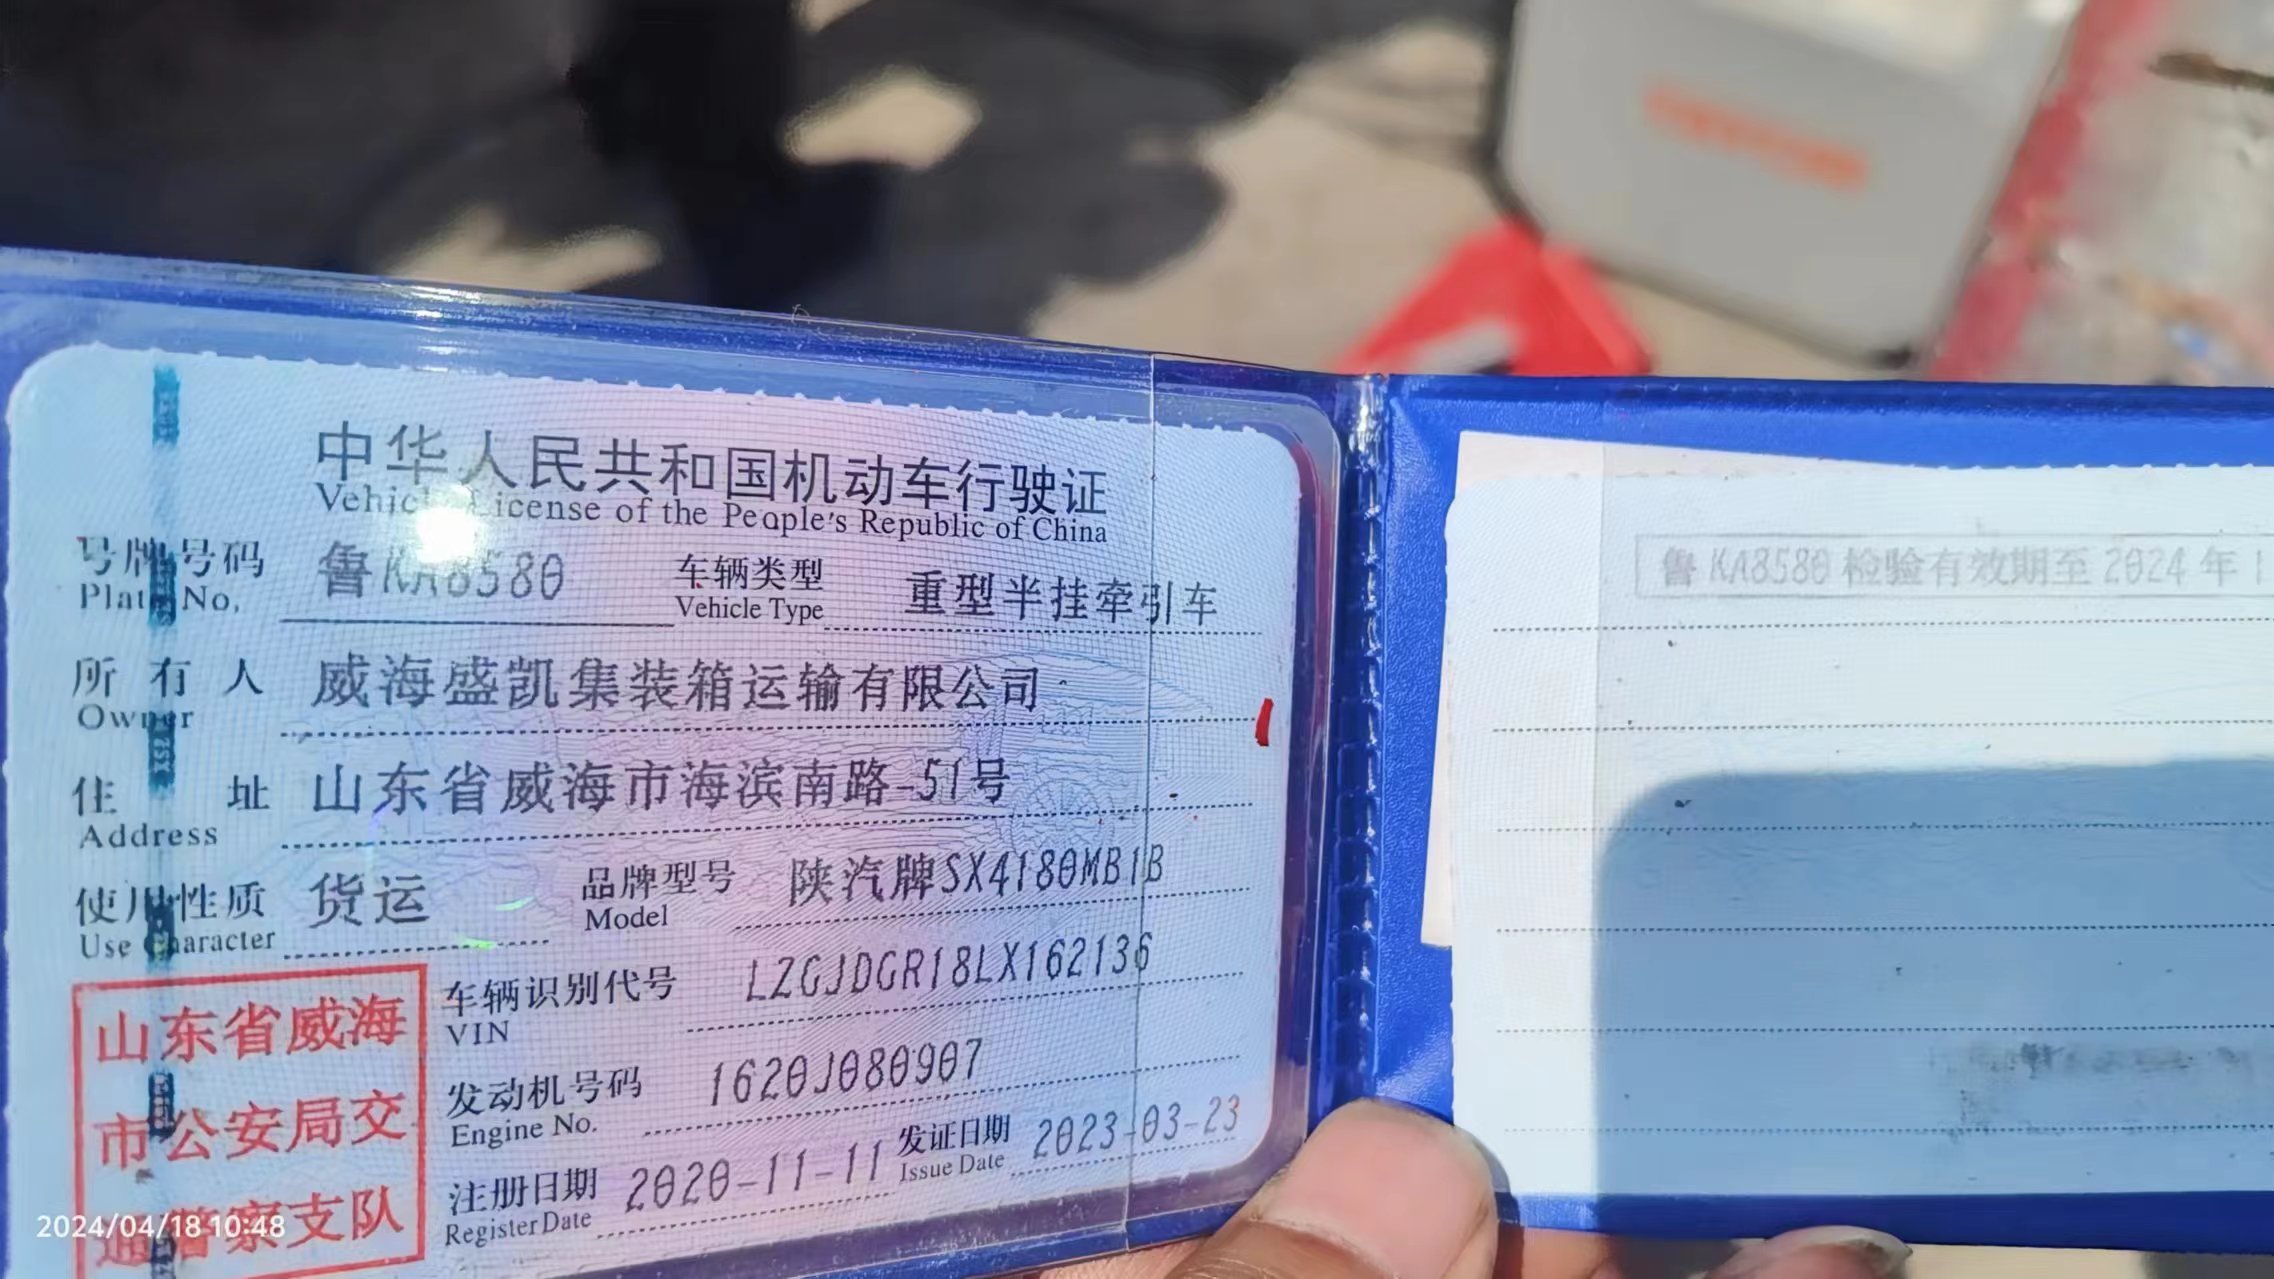 中华人民共和国机动车行驶证
Vehicle License of the People's Republic of China
号牌号码 鲁KA8580 车辆类型 重型半挂牵引车
Plate No. Vehicle Type
所有人 威海盛凯集装箱运输有限公司
Owner
住址 山东省威海市海滨南路-51号
Address
使用性质 货运 品牌型号 陕汽牌SX4180MB1B
Use Character Model
车辆识别代号 LZGJDGR18LX162136
VIN
发动机号码 1620J080907
Engine No.
注册日期 2020-11-11 发证日期 2023-03-23
Register Date Issue Date
山东省威海
市公安局交
通警察支队
2024/04/18 10:48
鲁KA8580检验有效期至2024年1